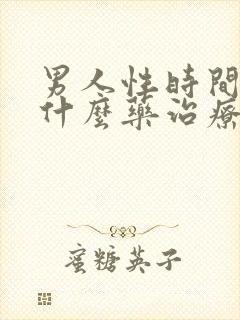 男人性時間
什麼藥治療
蜜糖英子